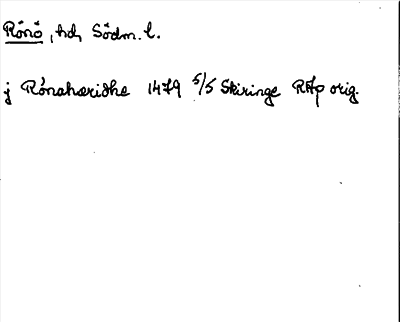 Rönö, hd, Södm. l.
j Rönahæridhe 1479 5/5 Skiringe RAp orig.